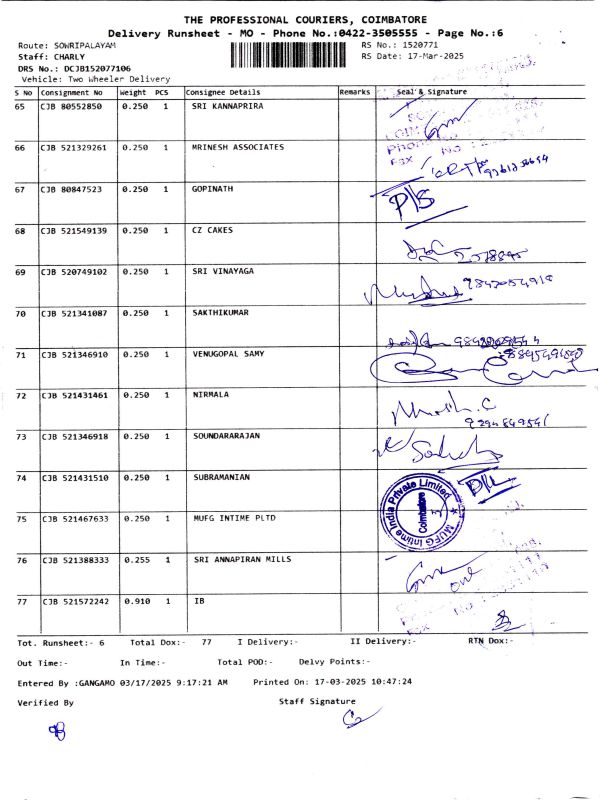 THE PROFESSIONAL COURIERS, COIMBATORE
Delivery Runsheet - MO - Phone No.:0422-3505555 - Page No.:6
Route: SOWRIPALAYAM RS No.: 1520771
Staff: CHARLY RS Date: 17-Mar-2025
DRS No.: DCJB152077106
Vehicle: Two Wheeler Delivery
S No Consignment No Weight PCS Consignee Details Remarks Seal & Signature
65 CJB 80552850 0.250 1 SRI KANNAPRIRA
66 CJB 521329261 0.250 1 MRINESH ASSOCIATES
67 CJB 80847523 0.250 1 GOPINATH
68 CJB 521549139 0.250 1 CZ CAKES
69 CJB 520749102 0.250 1 SRI VINAYAGA
70 CJB 521341087 0.250 1 SAKTHIKUMAR
71 CJB 521346910 0.250 1 VENUGOPAL SAMY
72 CJB 521431461 0.250 1 NIRMALA
73 CJB 521346918 0.250 1 SOUNDARARAJAN
74 CJB 521431510 0.250 1 SUBRAMANIAN
75 CJB 521467633 0.250 1 MUFG INTIME PLTD
MUFG Intime India Private Limited
Coimbatore
76 CJB 521388333 0.255 1 SRI ANNAPIRAN MILLS
77 CJB 521572242 0.910 1 IB
Tot. Runsheet:- 6 Total Dox:- 77 I Delivery:- II Delivery:- RTN Dox:-
Out Time:- In Time:- Total POD:- Delvy Points:-
Entered By :GANGAMO 03/17/2025 9:17:21 AM Printed On: 17-03-2025 10:47:24
Verified By Staff Signature